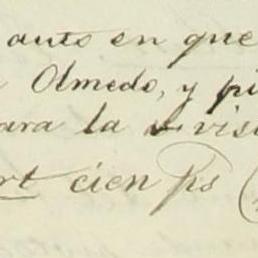 auto en que
Olmedo, y pi
ara la vis
rt cien ps